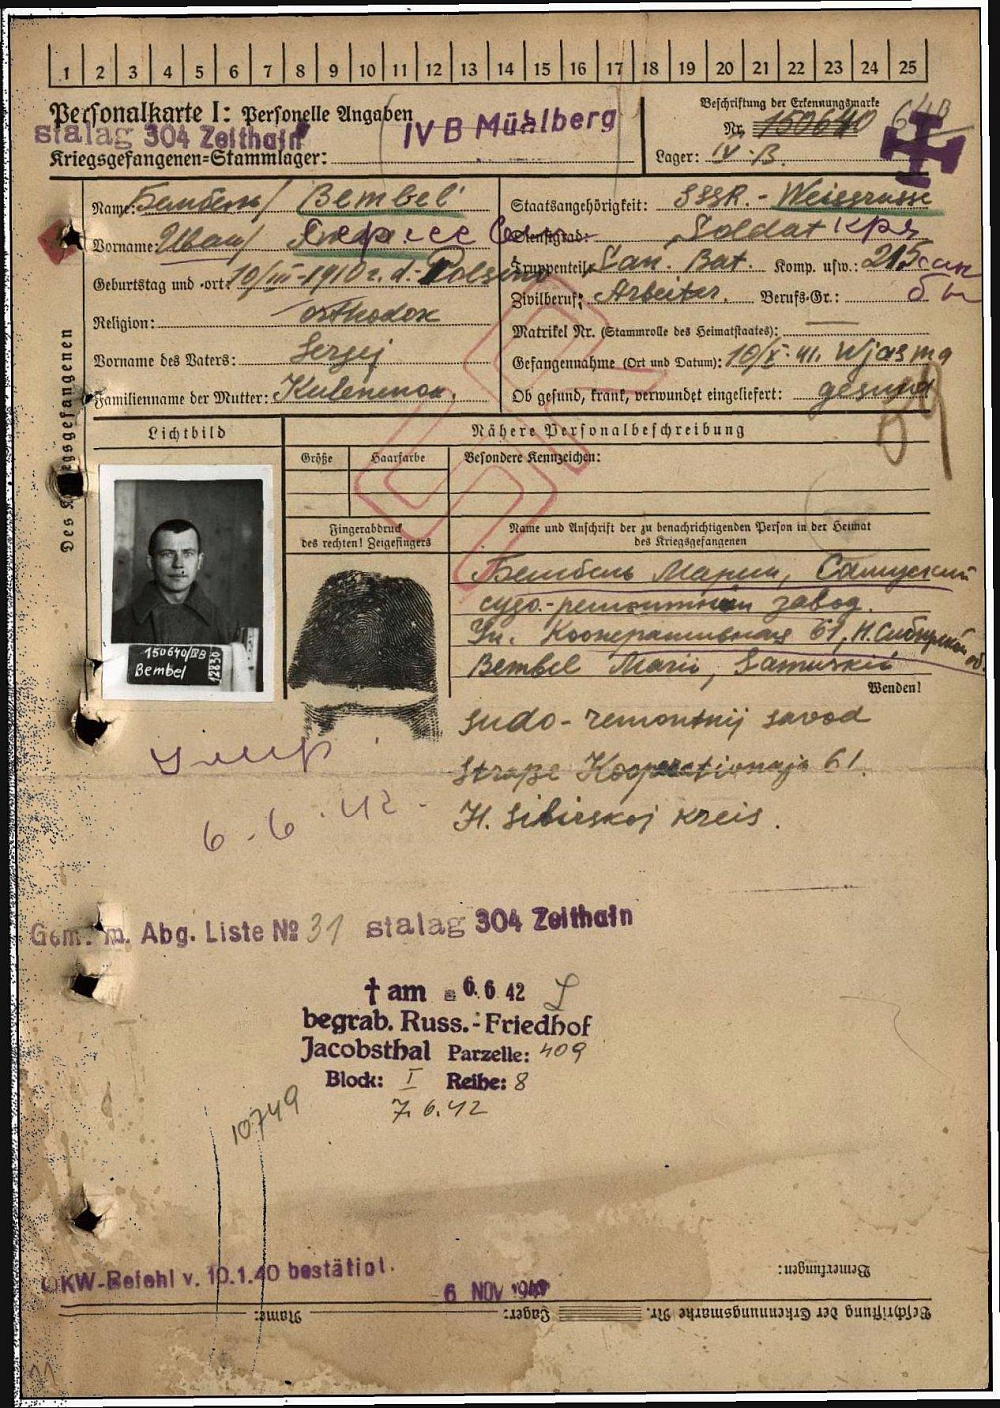 1 2 3 4 5 6 7 8 9 10 11 12 13 14 15 16 17 18 19 20 21 22 23 24 25
Personalkarte I: Personelle Angaben
stalag 304 Zeithain
IV B Mühlberg
Kriegsgefangenen=Stammlager:
Beschriftung der Erkennungsmarke
Nr. 150640
Lager: IV B.
Des Kriegsgefangenen
Name: Бембель / Bembel
Vorname: Иван /
Geburtstag und -ort: 10/III-1910 г. d.
Religion: orthodox
Vorname des Vaters: Sergej
Familienname der Mutter:
Staatsangehörigkeit: SSSR. - Weisrusse
Dienstgrad: Soldat кр
Truppenteil: San. Bat. Komp. usw.: 215 сан
Zivilberuf: Arbeiter. Berufs-Gr.: б
Matrikel Nr. (Stammrolle des Heimatstaates): —
Gefangennahme (Ort und Datum): 10/X. 41. Wjasma
Ob gesund, krank, verwundet eingeliefert: gesund
Lichtbild
Nähere Personalbeschreibung
Größe Haarfarbe Besondere Kennzeichen:
Fingerabdruck
des rechten! Zeigefingers
Name und Anschrift der zu benachrichtigenden Person in der Heimat
des Kriegsgefangenen
150640/IVB
Bembel
12830
Бембель Мария, Самусский
судо-ремонтний завод.
Ул. Кооперативная 61, Н. Сибирской об.
Bembel Marii, Samuskii
Wenden!
Sudo-remontnij savod
Straße Kooperationaja 61.
N. Sibirskoj kreis.
Умер
6.6.42.
Gem. m. Abg. Liste № 31 stalag 304 Zeithain
† am 6. 6 42
begrab. Russ.-Friedhof
Jacobsthal Parzelle: 409
Block: I Reihe: 8
7. 6. 42
10749
OKW-Befehl v. 10.1.40 bestätigt.
6 NOV 1941
Bemerkungen:
Beschriftung der Erkennungsmarke Nr. Lager: Name: